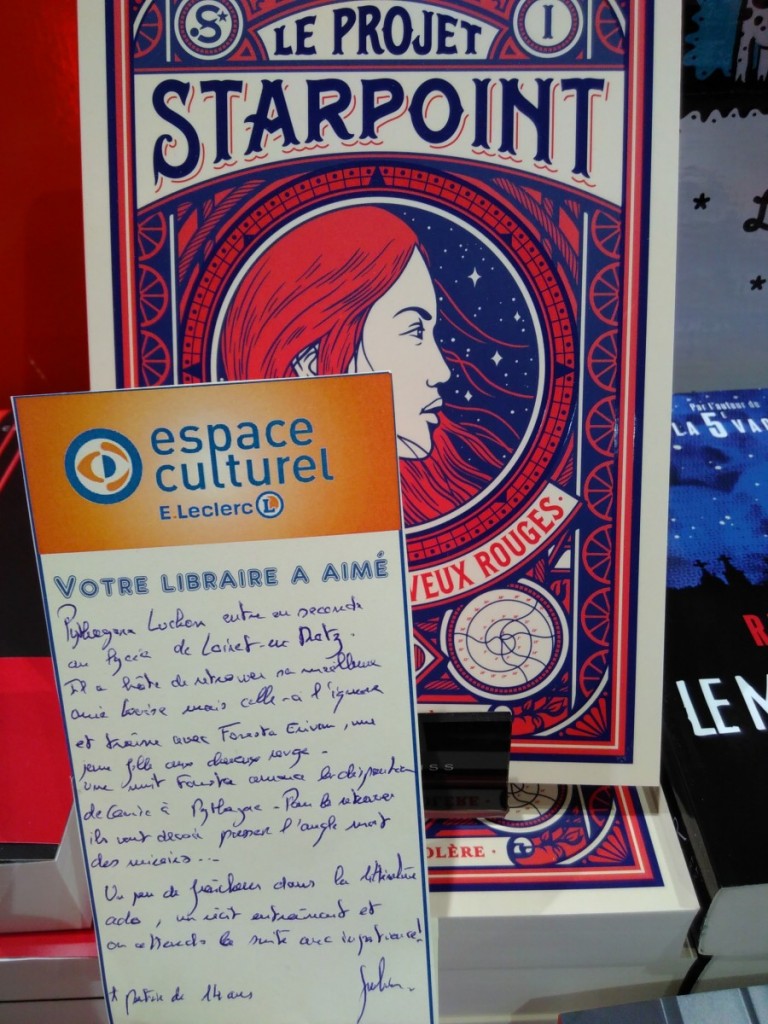 S
I
LE PROJET
STARPOINT
VEUX ROUGES.
OLÈRE
Par l'auteur de
LA 5 VAG
R
LE M
L
espace
culturel
E.Leclerc L
VOTRE LIBRAIRE A AIMÉ
Pythagore Luchon entre en seconde
au lycée de Loiret-en-Retz.
Il a hâte de retrouver sa meilleure
amie Louise mais celle-ci l'ignore
et traîne avec Foresta Erivan, une
jeune fille aux cheveux rouge.
Une nuit Foresta annonce la disparition
de Louise à Pythagore. Pour la retrouver
ils vont devoir passer l'angle mort
des miroirs...
Un peu de fraîcheur dans la littérature
ado, un récit entraînant et
on attends la suite avec impatience!
* partir de 14 ans